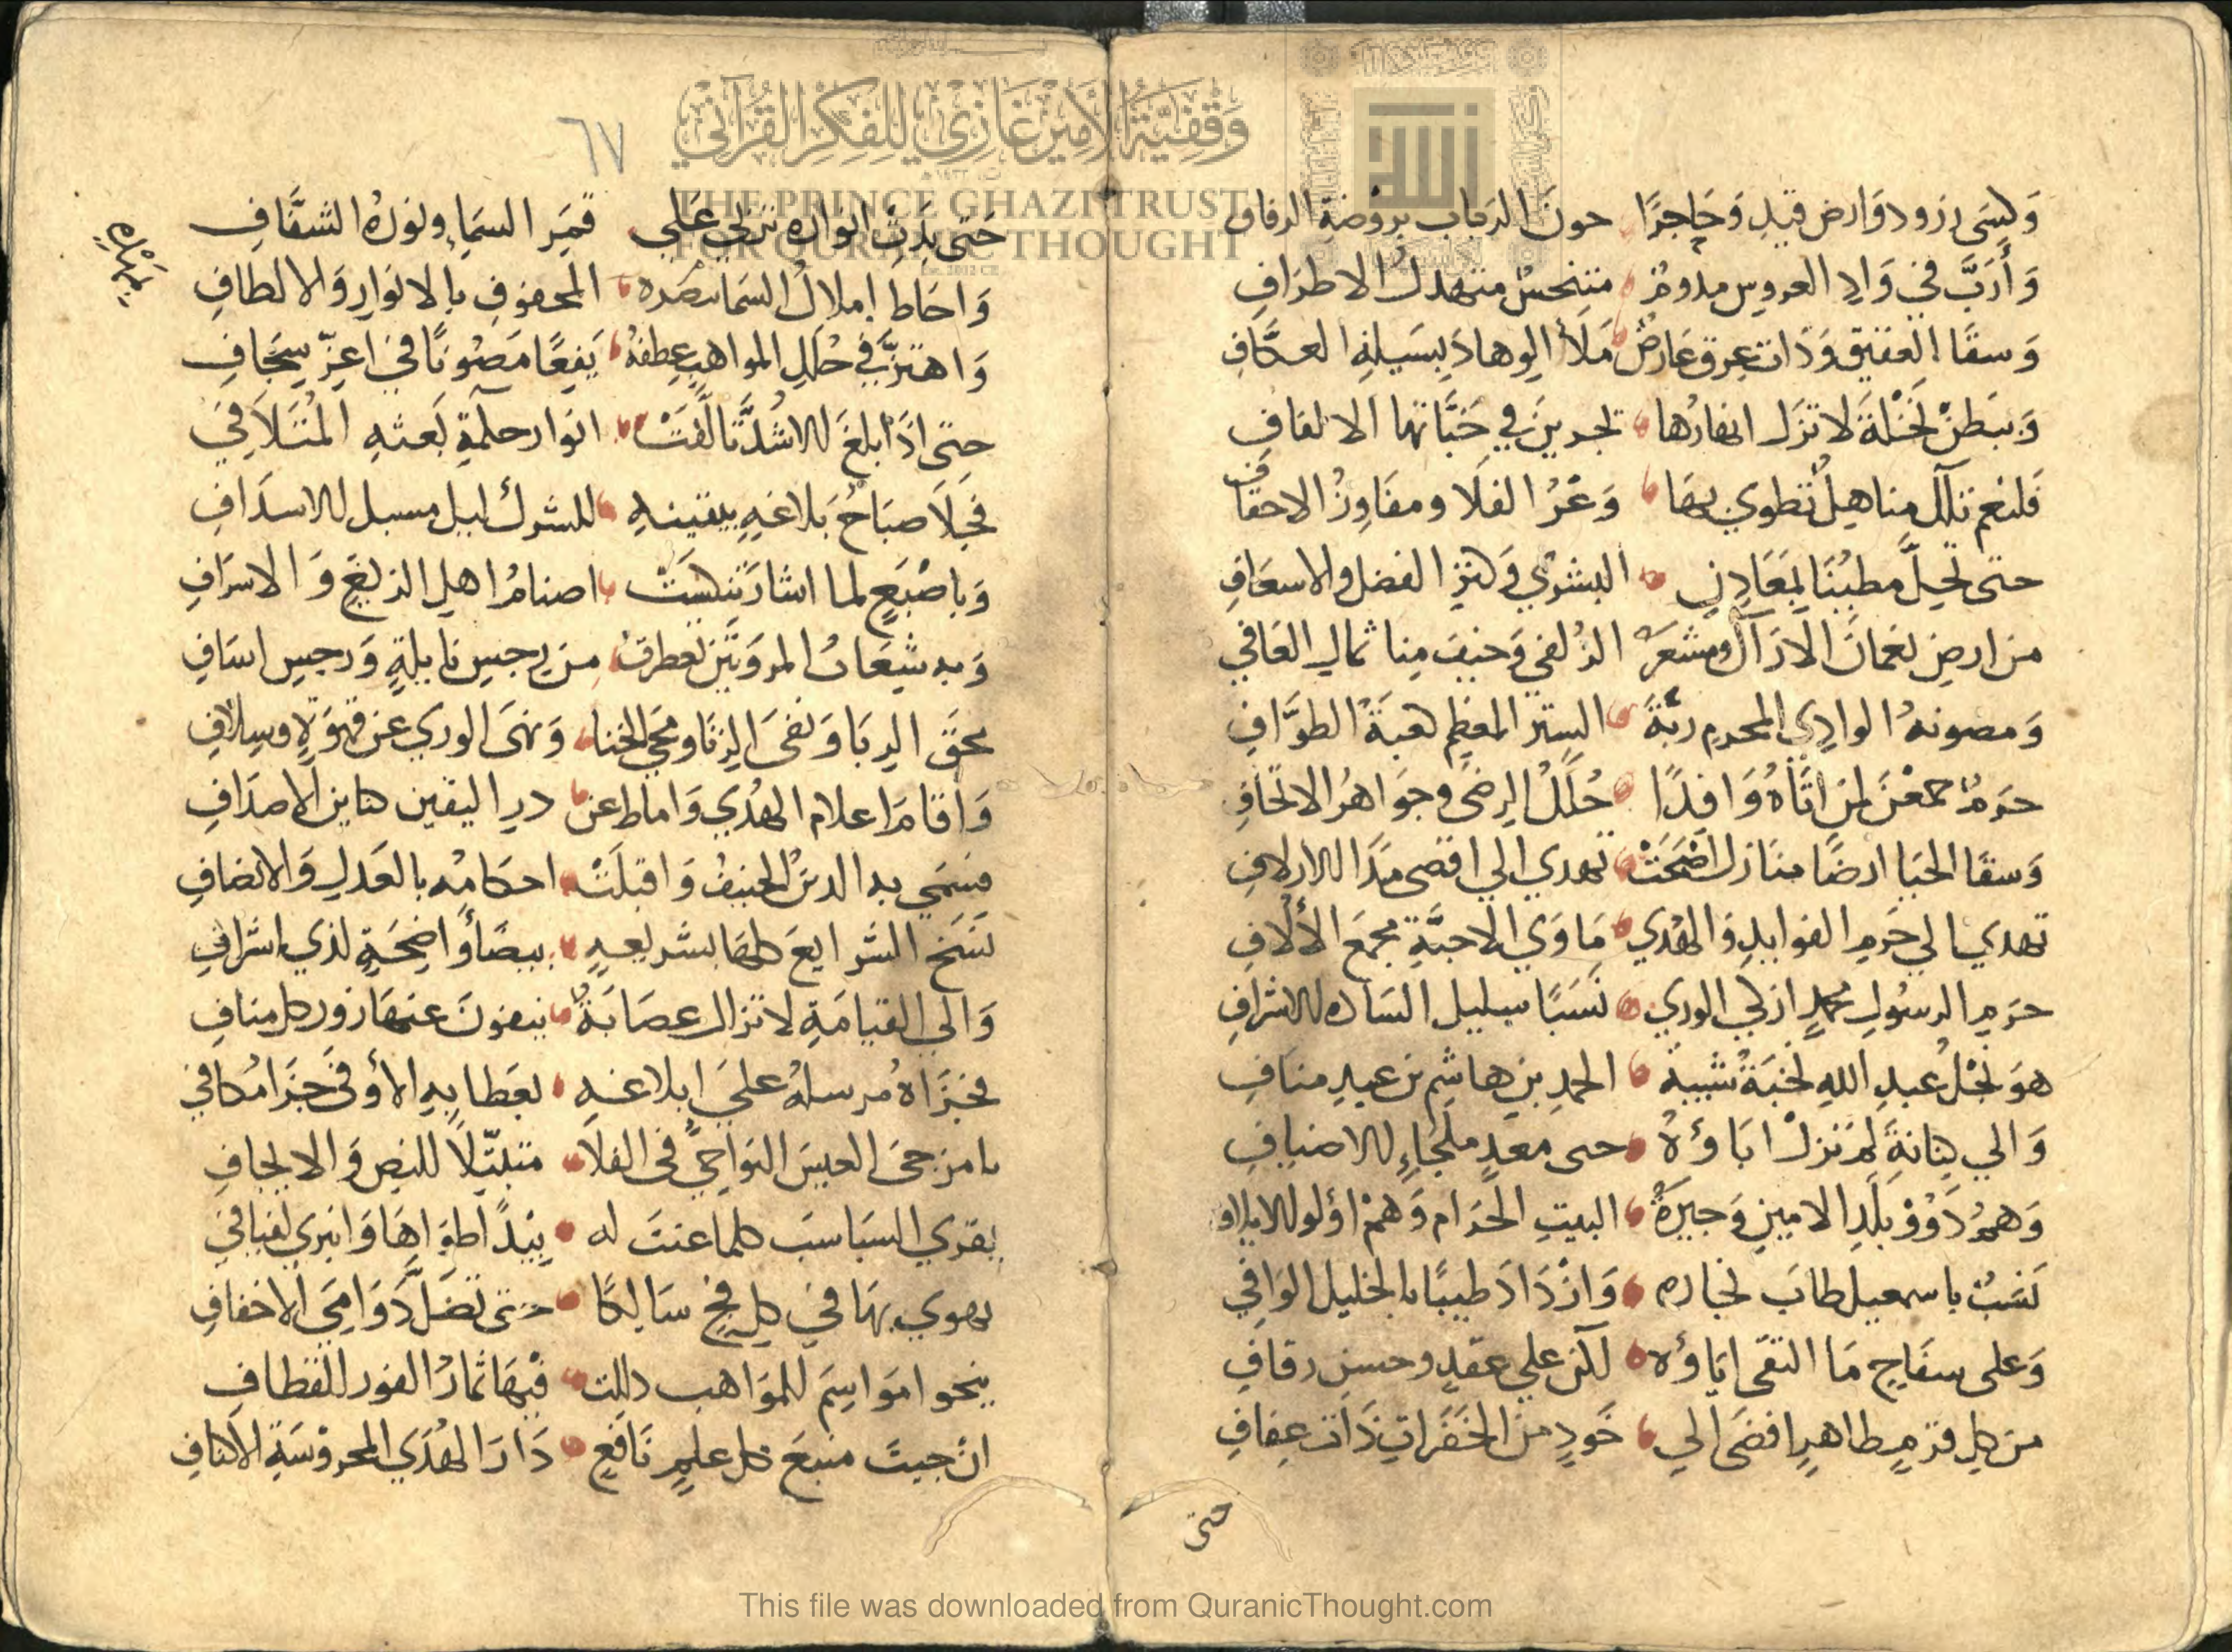 وَكسَى زرود وَارض قيدٍ وَحَاجرًا حون الرقاب بروضة الرفاف
وَأرَبَّ في وَادِ العروس مدومٌ متبجسٌ متهدلُ الاطرَافِ
وَسقَا العقيق وَذَات عرق عَارضٌ مَلأ الوهادَ بسَيلهِ العكّافِ
وَببَطنْ نَخْلةَ لا تزَل انهارُها تجرين في جَنَّاتها الالفافِ
فلنعم تلك مناهل تُطوي بهَا وَعْرُ الفلَا ومفَاوِزُ الاحقاف
حتى تحِلَّ مطيُنَا بمَعَادِنِ البشرى وَكنزِ الفضل والاسعَافِ
من ارضِ نعمَانَ الارَاكَ ومشعَرِ الزُلفى وَخيف منا ثمالِ العَافي
وَمصونهُ الوادِي المحرم ربّةَ الستر المعَظمِ كعبَةُ الطوَّافِ
حرَمٌ جمعْنَ لمن اتَّاهُ وَافِدًا حُلَلُ الرضَى وجوَاهرُ الاتحَافِ
وَسقَا الحَيَا ارضًا منَازل اضْحَتْ تهدي الي اقصى مدَا الازلافِ
تهدي الي حَرمِ الفوايدِ وَالهُدي مَاوَي الاحبَّةِ مجمَعَ الأُلافِ
حرَمِ الرسُولِ محمدٍ ازكي الوري نَسَبًا سليل السَاده الاشرافِ
هوَ نجْلُ عبدِ اللهِ نخبَةُ شيبة الحمدِ بنِ هاشِمِ بن عبدِ منَافِ
وَالي كِنانةَ لمْ تزلْ ابَاؤهُ حتى معَدٍ ملجَاءِ للاضيافِ
وَهمُ ذَوُوْ بَلَدِ الامينِ وَجيرَةُ البيتِ الحَرَام وَهمْ اؤلو الايلاف
نَسَبٌ باسمعيل طابَ نجاره وَازْدَادَ طيبًا بالخليل الوَافي
وَعلى سفَاحٍ مَا التقى ابَاؤه لكن علي عقدٍ وحسنِ زفافِ
من كلِ قرمٍ طاهرٍ افضَى الي خَودٍ منَ الخفَرَاتِ ذَات عِفافِ
حتى
٦٧
حَتى بدَتْ انوَاره تزهي عَلي قمَرِ السمَاءِ ونورُهُ الشفَّافِ
وَاحَاطَ املاكُ السمَا بمهَده المحفوفِ بالانوَارِ وَالالطافِ
بمَهْدِهِ
وَاهتزَّ في حُلَلِ المواهبِ عِطفهُ يَفِعًا مَصُونًا في اعِزّ سِجَافِ
حتى اذَا بلغَ الاشُدَّ تَالّقتْ انوار حكمةِ بَعثهِ المتَلَافي
فجَلَا صبَاحُ بَلاغهِ بيقينهِ للشرك ليل مسبل الاسدَافِ
وَباصْبَعٍ لما اشارَ تنكسَتْ اصنامُ اهلِ الزيغِ وَالاسرَافِ
وَبه شِعَابُ المروَتَيْنِ تعطرت من رجسِ نايلةٍ وَرجسِ اسَافِ
محقَ الرِبَا وَنفى الزِنَا ومحى الخنا وَنهَى الوري عن قهوَةٍ وسلافِ
وَاقامَ اعلام الهُدي وَاماط عن درِ اليقين كناين الاصدَافِ
فسَمَي به الدينُ الحنيفُ وَاقبلَتْ احكامُه بالعَدلِ وَالانصَافِ
نسَخَ الشرايعَ كلهَا بشريعةٍ بيضَا وَاضِحَةٍ لذي اشرافِ
وَالي القيامَةِ لا تزال عصَابَةٌ ينفونَ عنهَا زور كل منافِ
فجَزَاهُ مُرسلهُ علي ابلاغهِ بعَطايهِ الأوفَى جزَا مُكافي
يا مزجىَ العيسَ النوَاجي في الفلا متبتّلًا للنص وَالايجافِ
يقري السبَاسَب كلما عنت له بيَدًا طوَاهَا وَانبري لفيَافي
يهوي بهَا في كلِ فجٍ سَالِكًا حتى تضَلَّ دَوَامِيَ الاخفافِ
ينحوا موَاسِمَ للموَاهب ذللت فيهَا ثمارُ الفوز للقطافِ
ان جيتَ منبعَ كل علمٍ نَافعٍ دَارَ الهُدَى المحروْسَةِ الاكنافِ
وَقْفِيَّةُ الأَمِيْرِ غَازِي لِلْفِكْرِ الْقُرْآنِي
THE PRINCE GHAZI TRUST
FOR QURANIC THOUGHT
This file was downloaded from QuranicThought.com